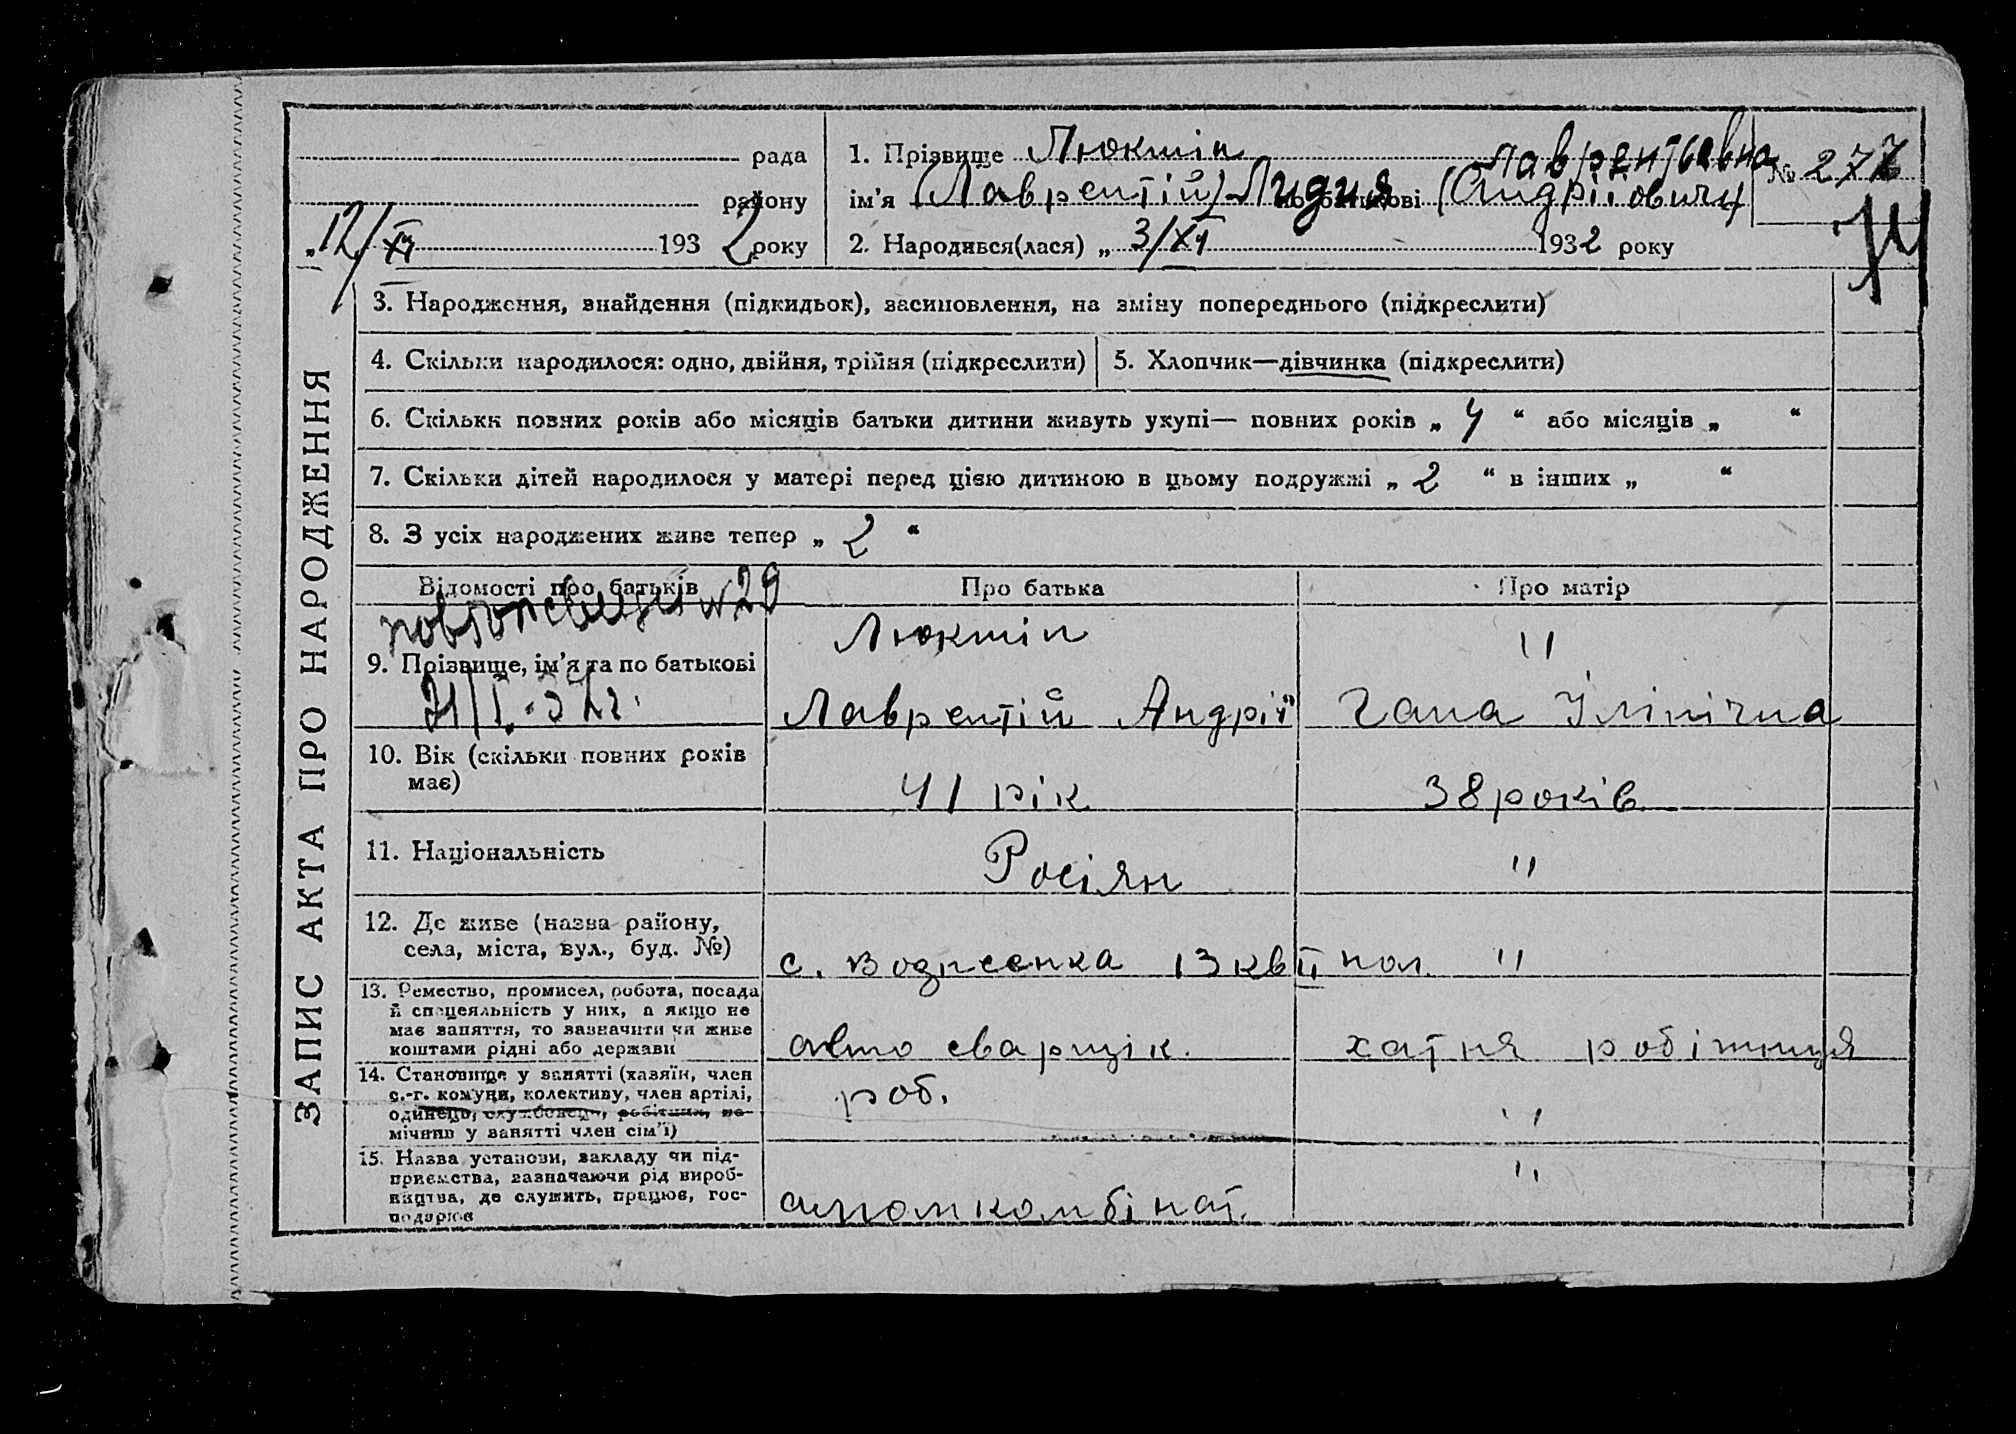 ЗАПИС АКТА ПРО НАРОДЖЕННЯ
рада
району
12/XII 1932 року
1. Прізвище Люкшін
Лаврентьевна
№ 277
ім'я (Лаврентій) Лидия по батькові (Андрійович)
2. Народився(лася) „ 3/XII 1932 року
3. Народження, знайдення (підкидьок), засиновлення, на зміну попереднього (підкреслити)
4. Скільки народилося: одно, двійня, трійня (підкреслити)
5. Хлопчик—дівчинка (підкреслити)
6. Скільки повних років або місяців батьки дитини живуть укупі— повних років „ 4 “ або місяців „ “
7. Скільки дітей народилося у матері перед цією дитиною в цьому подружжі „ 2 “ в інших „ “
8. З усіх народжених живе тепер „ 2 “
Відомості про батьків
Про батька
Про матір
29
9. Прізвище, ім'я та по батькові
Люкшін
"
Лаврентій Андрій
Гана Ілінічна
10. Вік (скільки повних років
має)
41 рік
38 років
11. Національність
Росіян
"
12. Де живе (назва району,
села, міста, вул., буд. №)
с. Вознесенка 13 кв II пол. "
13. Ремество, промисел, робота, посада
й спецеяльність у них, а якщо не
має заняття, то зазначити чи живе
коштами рідні або держави
авто сварщік.
хатня робітниця
14. Становище у занятті (хазяїн, член
с.-г. комуни, колективу, член артілі,
одинець, службовець, робітник, по-
мічник у занятті член сім'ї)
роб.
"
15. Назва установи, закладу чи під-
приємства, зазначаючи рід вироб-
ництва, де служить, працює, гос-
подарює
алюмкомбінат.
"